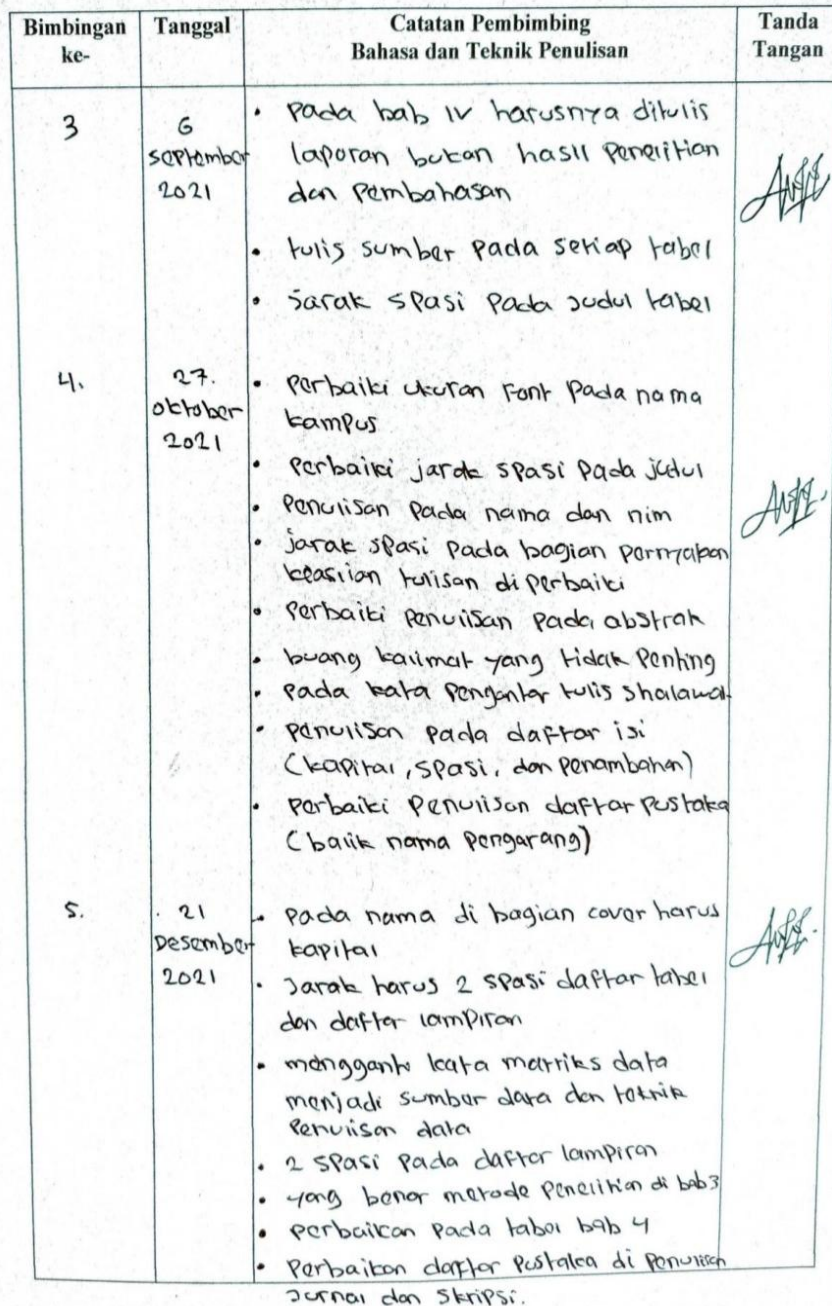 Bimbingan ke- Tanggal Catatan Pembimbing Bahasa dan Teknik Penulisan Tanda Tangan
3
6 September 2021
• Pada bab IV harusnya ditulis
laporan bukan hasil Penelitian
dan Pembahasan
• tulis sumber Pada setiap tabel
• Jarak spasi Pada Judul tabel
4.
27. Oktober 2021
• Perbaiki ukuran Font Pada nama
kampus
• Perbaiki jarak spasi Pada judul
• Penulisan Pada nama dan nim
• jarak spasi Pada bagian Pernyataan
keaslian tulisan di perbaiki
• Perbaiki Penulisan Pada abstrak
• buang kalimat yang tidak Penting
• Pada kata Pengantar tulis shalawat
• Penulisan Pada daftar isi
(kapital, spasi, dan Penambahan)
• Perbaiki Penulisan daftar Pustaka
(balik nama Pengarang)
5.
21 Desember 2021
• Pada nama di bagian cover harus
kapital
• Jarak harus 2 spasi daftar tabel
dan daftar lampiran
• mengganti kata matriks data
menjadi sumber data dan teknik
Penulisan data
• 2 spasi Pada daftar lampiran
• yang benar metode Penelitian di bab 3
• Perbaikan Pada tabel bab 4
• Perbaikan daftar Pustaka di Penulisan
Jurnal dan Skripsi.